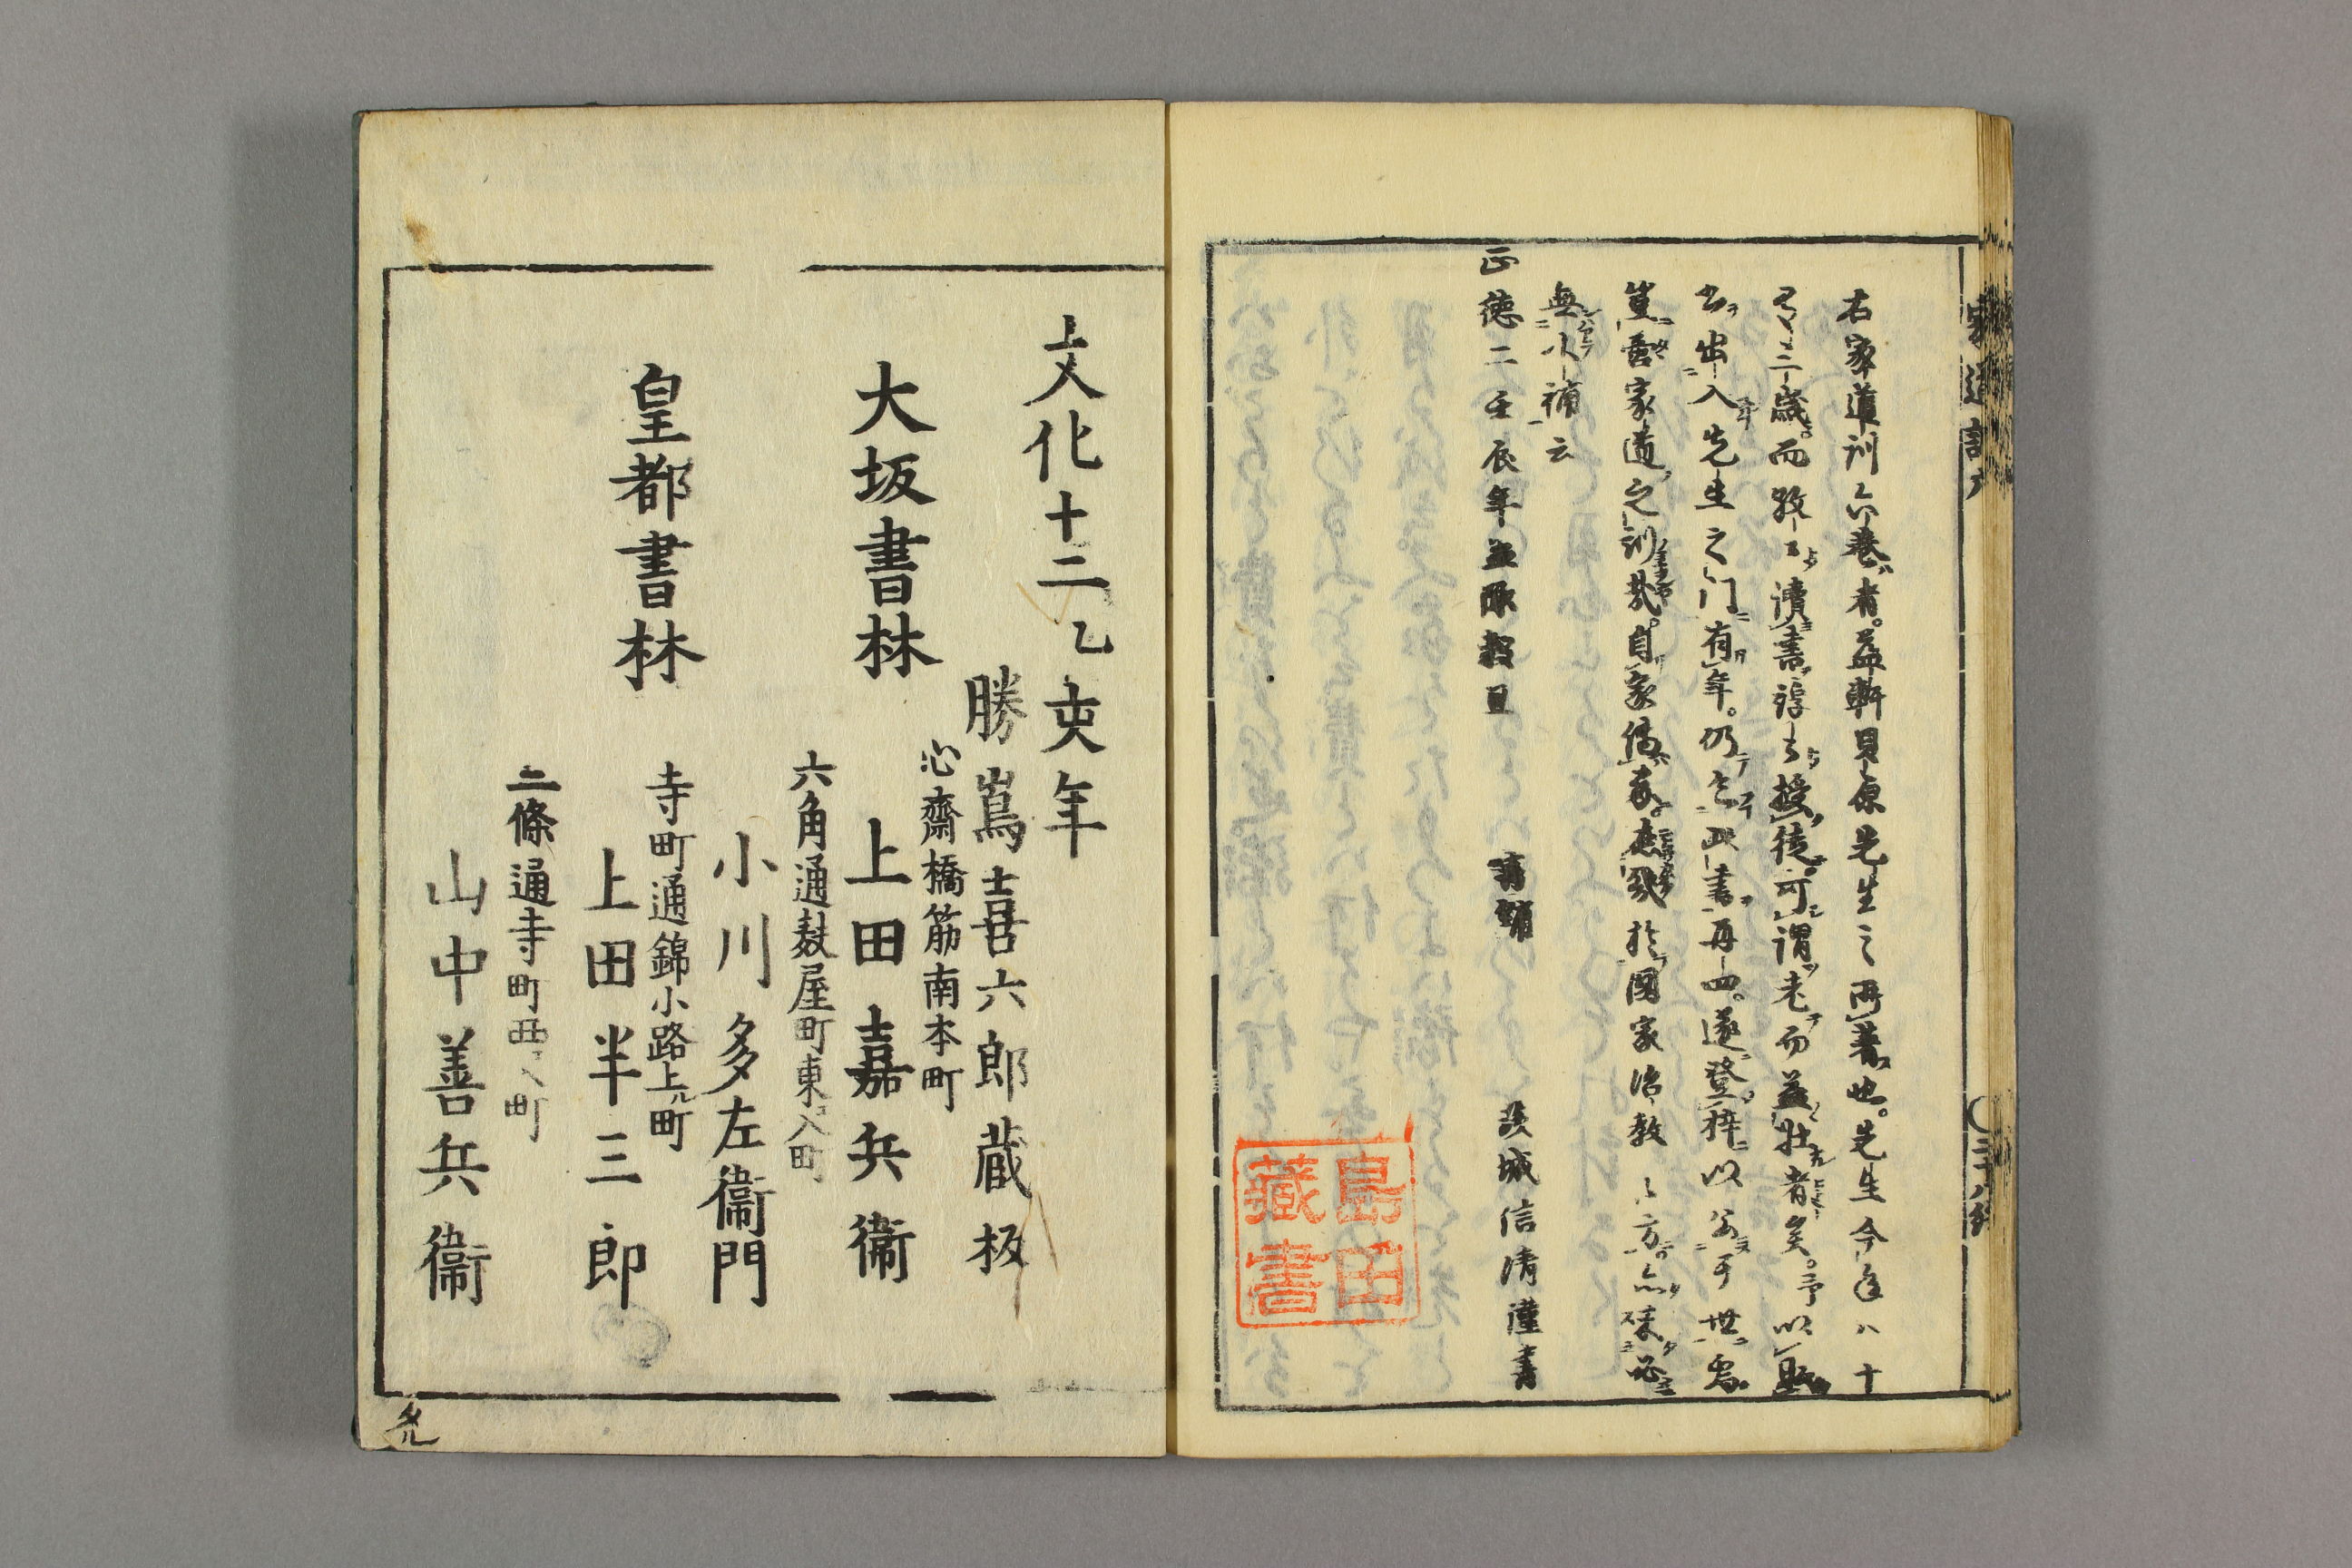 右家道訓六巻者。益軒貝原先生之所著也。先生今年八十
有三歳。而孜々讀書諄々授徒。可謂老而益壮者矣。予以
出入先生之门有年。仍乞此書再四。遂登梓以公于世焉。
豈啻家道之訓哉。自家傳家。於國家治教之方。亦未必
無小補云
正徳二壬辰年孟陬穀旦
茨城信清謹書
家道訓六
島田
藏書
文化十二乙亥年
勝嶌喜六郎蔵板
大坂書林
心齋橋筋南本町
上田嘉兵衞
六角通麸屋町東入町
小川多左衞門
皇都書林
寺町通錦小路上ル町
上田半三郎
二條通寺町西入町
山中善兵衞